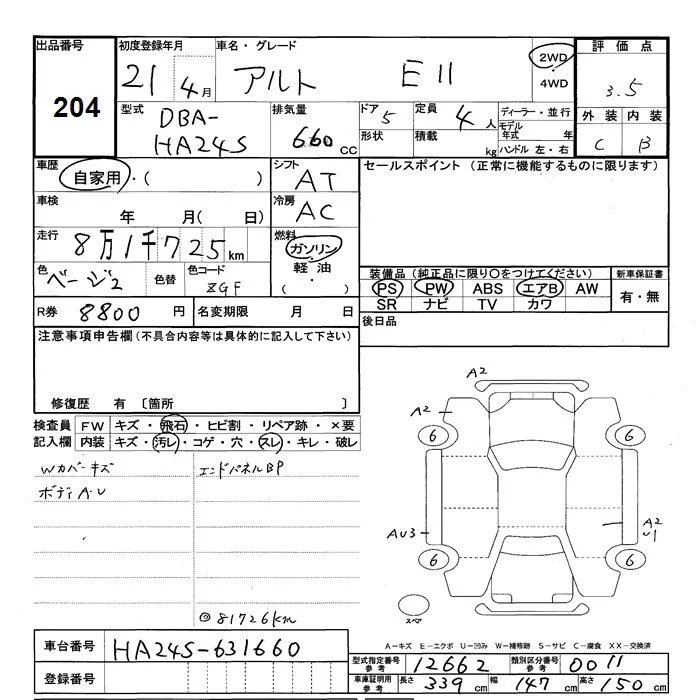 出品番号 初度登録年月 車名・グレード 評価点
204 21 4月 アルト E11 2WD ・ 4WD 3.5
型式 DBA-HA24S 排気量 660 cc ドア 5 形状 定員 4人 積載 kg ディーラー・並行 モデル年式 年 ハンドル 左・右 外装 内装 C B
車歴 自家用・( ) シフト AT セールスポイント (正常に機能するものに限ります)
車検 年 月( 日) 冷房 AC
走行 8万1千725km 燃料 ガソリン・軽油・( )
色 ベージ2 色替 色コード ZGF 装備品 (純正品に限り○をつけてください) 新車保証書
PS PW ABS エアB AW 有・無
SR ナビ TV カワ
R券 8800円 名変期限 月 日 後日品
注意事項申告欄(不具合内容等は具体的に記入して下さい)
修復歴 有 〔箇所 〕
検査員記入欄 FW キズ・飛石・ヒビ割・リペア跡・×要
内装 キズ・汚レ・コゲ・穴・スレ・キレ・破レ
Wカバーキズ エンドパネルBP
ボディA・U
A2
A2
6 6
AU3 A2
U1
6 6
スペア
◎81726km
A-キズ E-エクボ U-凹み W-補修跡 S-サビ C-腐食 XX-交換済
車台番号 HA24S-631660 型式指定番号 参考 12662 類別区分番号 参考 0011
登録番号 車庫証明用 参考 長さ 339cm 幅 147cm 高さ 150cm